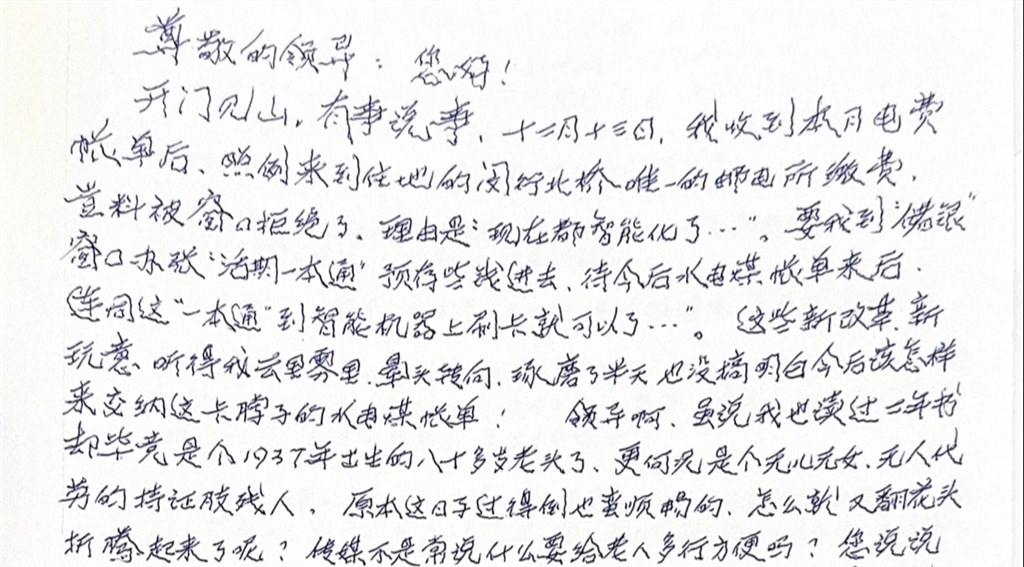 尊敬的领导：您好！
开门见山，有事说事，十二月十三日，我收到本月电费
帐单后、照例来到住地的闵行北桥唯一的邮电所缴费，
岂料被窗口拒绝了、理由是：“现在都智能化了…”。要我到“储银”
窗口办张“活期一本通”预存些钱进去、待今后水电煤帐单来后，
连同这“一本通”到智能机器上刷卡就可以了…”。这些新改革、新
玩意、听得我云里雾里、晕头转向、琢磨了半天也没搞明白今后该怎样
来交纳这卡脖子的水电煤帐单！ 领导啊、虽说我也读过二年书
却毕竟是个1937年出生的八十多岁老头了、更何况是个无儿无女、无人代
劳的持证肢残人。原本这日子过得倒也蛮顺畅的、怎么就又翻花头
折腾起来了呢？传媒不是常说什么要给老人多行方便吗？您说说